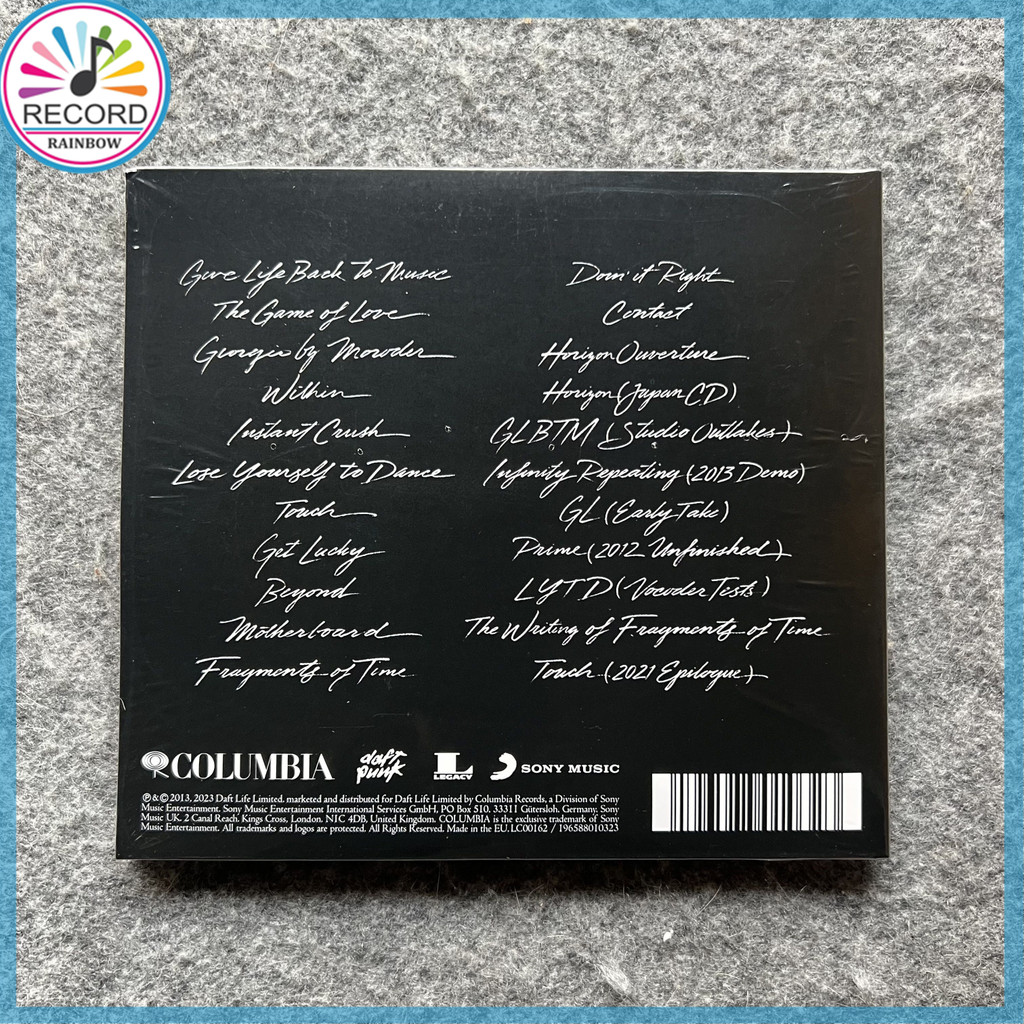 RECORD
RAINBOW
Give Life Back To Music
The Game of Love
Giorgio by Moroder
Within
Instant Crush
Lose Yourself to Dance
Touch
Get Lucky
Beyond
Motherboard
Fragments of Time
Doin' it Right
Contact
Horizon Ouverture
Horizon (Japan CD)
GLBTM (Studio Outtakes)
Infinity Repeating (2013 Demo)
GL (Early Take)
Prime (2012 Unfinished)
LYTD (Vocoder Tests)
The Writing of Fragments of Time
Touch (2021 Epilogue)
COLUMBIA
daft punk
L LEGACY
SONY MUSIC
℗ & © 2013, 2023 Daft Life Limited. marketed and distributed for Daft Life Limited by Columbia Records, a Division of Sony
Music Entertainment. Sony Music Entertainment International Services GmbH, PO Box 510, 33311 Gütersloh, Germany. Sony
Music UK. 2 Canal Reach, Kings Cross, London. N1C 4DB, United Kingdom. COLUMBIA is the exclusive trademark of Sony
Music Entertainment. All trademarks and logos are protected. All Rights Reserved. Made in the EU. LC00162 / 196588010323